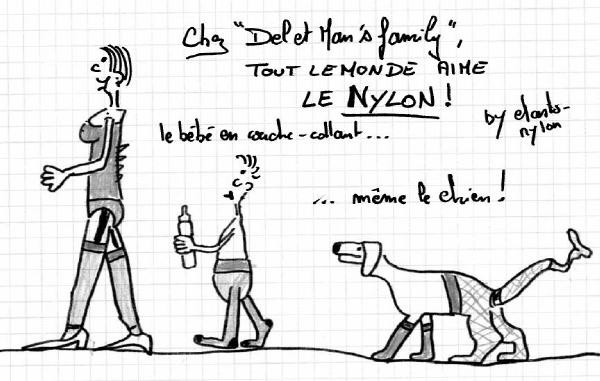 Chez "Del et Man's family",
TOUT LE MONDE AIME
LE NYLON !
by elasto-
nylon
le bébé en couche-collant...
... même le chien !